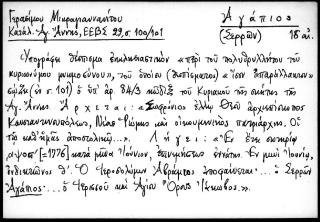 Γερασίμου Μικραγιαννανίτου
Ἀγάπιος
Κατάλ. Ἁγ. Ἄννης, ΕΕΒΣ 29, σ. 100/101
(Σερρῶν) 18 αἰ.
«Ὑπογράφει θέσπισμα ἐκκλησιαστικὸν «περὶ τοῦ πολυθρυλλήτου τοῦ
κυριωνύμου μνημοσύνου», τοῦ ὁποίου (θεσπίσματος) «ἴσον ἀπαράλλακτον»
(ἐν σ. 101) ὁ ὑπ' ἀρ. 84/3 κῶδιξ τοῦ Κυριακοῦ τῆς σκήτης τῆς
Ἁγ. Ἄννης. Ἄρχεται: «Σωφρόνιος ἐλέῳ Θεοῦ ἀρχιεπίσκοπος
Κωνσταντινουπόλεως, Νέας Ῥώμης καὶ οἰκουμενικὸς πατριάρχης. Οἱ
τὰς καθ' ἡμᾶς ἀποστολικῆς...». Λήγει: «Ἐν ἔτει σωτηρίῳ
αψοστ' [=1776] κατὰ μῆνα Ἰούνιον, ἐπινεμήσεως ἐννάτης. Ἐν μηνὶ Ἰουνίῳ,
ἰνδικτιῶνος θ'. Ὁ Ἱεροσολύμων Ἀβράμιος ἀποφαίνεται... ὁ Σερρῶν
Ἀγάπιος... ὁ Ἱερισσοῦ καὶ Ἁγίου Ὄρους Ἰάκωβος».